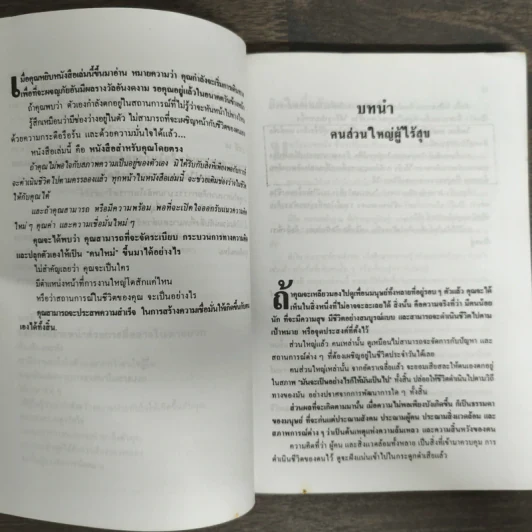 เมื่อคุณหยิบหนังสือเล่มนี้ขึ้นมาอ่าน หมายความว่า คุณกำลังจะเริ่มการเดินทาง
เพื่อที่จะผจญภัยอันมีผลรางวัลอันงดงาม รอคุณอยู่แล้วในอนาคตวันข้างหน้า
ถ้าคุณพบว่า ตัวเองกำลังตกอยู่ในสถานการณ์ที่ไม่รู้ว่าจะหันหน้าไปทางไหน
รู้สึกเหมือนว่ามีช่องว่างอยู่ในตัว ไม่สามารถที่จะเผชิญหน้ากับชีวิตของตนเอง
ด้วยความกระตือรือร้น และด้วยความมั่นใจได้แล้ว...
หนังสือเล่มนี้ คือ หนังสือสำหรับคุณโดยตรง
ถ้าคุณไม่พอใจกับสภาพความเป็นอยู่ของตัวเอง มิได้รับกับสิ่งที่เพียงพอกับการที่
จะดำเนินชีวิตไปตามครรลองแล้ว ทุกหน้าในหนังสือเล่มนี้ จะช่วยเติมช่องว่างในชีวิต
ให้กับคุณได้
และถ้าคุณสามารถ หรือมีความพร้อม พอที่จะเปิดใจออกรับแนวความคิด
ใหม่ๆ คุณค่า และ ความเชื่อมั่นใหม่ๆ
คุณจะได้พบว่า คุณสามารถที่จะจัดระเบียบ กระบวนการทางความคิด
และปลุกตัวเองให้เป็น "คนใหม่" ขึ้นมาได้อย่างไร
ไม่สำคัญเลยว่า คุณจะเป็นใคร
มีตำแหน่งหน้าที่การงานใหญ่โตสักแค่ไหน
หรือว่าสถานการณ์ในชีวิตของคุณ จะเป็นอย่างไร
คุณสามารถจะประสพความสำเร็จ ในการสร้างความเชื่อมั่นให้เกิดขึ้นกับตน
เองได้ทั้งสิ้น
บทนำ
คนส่วนใหญ่ผู้ไร้สุข
ถ้าคุณจะเหลียวมองไปดูเพื่อนมนุษย์ทั้งหลายที่อยู่รอบๆ ตัวแล้ว คุณจะได้
เห็นในสิ่งหนึ่งซึ่งไม่อาจจะละเลยได้ สิ่งนั้น คือความจริงที่ว่า มีคนน้อย
นัก ที่จะมีความสุข มีชีวิตอย่างสมบูรณ์แบบ และสามารถจะดำเนินชีวิตไปตาม
เป้าหมาย หรือจุดประสงค์ที่ตั้งไว้
ส่วนใหญ่แล้ว คนเหล่านั้น ดูเหมือนไม่สามารถจะจัดการกับปัญหา และ
สถานการณ์ต่างๆ ที่ต้องเผชิญอยู่ในชีวิตประจำวันได้เลย
คนส่วนใหญ่เหล่านั้น จากอัตราเฉลี่ยแล้ว จะยอมเสียสละให้ตนเองตกอยู่
ในสภาพ "มันจะเป็นอย่างไรก็ให้มันเป็นไป" ทั้งสิ้น ปล่อยให้ชีวิตดำเนินไปตามวิถี
ทางของมัน อย่างปราศจากการพัฒนาการใดๆ ทั้งสิ้น
ส่วนผลที่จะเกิดตามมานั้น เมื่อความไม่พอเพียงบังเกิดขึ้น ก็เป็นธรรมดา
ของมนุษย์ ที่จะกันแต่ประณามสังคม ประณามผู้คน ประณามสิ่งแวดล้อม และ
สภาพการณ์ต่างๆ ว่าเป็นต้นเหตุแห่งความล้มเหลว และความสิ้นหวังของตน
ความคิดที่ว่า ผู้คน และสิ่งแวดล้อมทั้งหลาย เป็นสิ่งที่เข้ามาควบคุม การ
ดำเนินชีวิตของตนไว้ ดูจะฝังแน่นเข้าไปในกระดูกดำเสียแล้ว